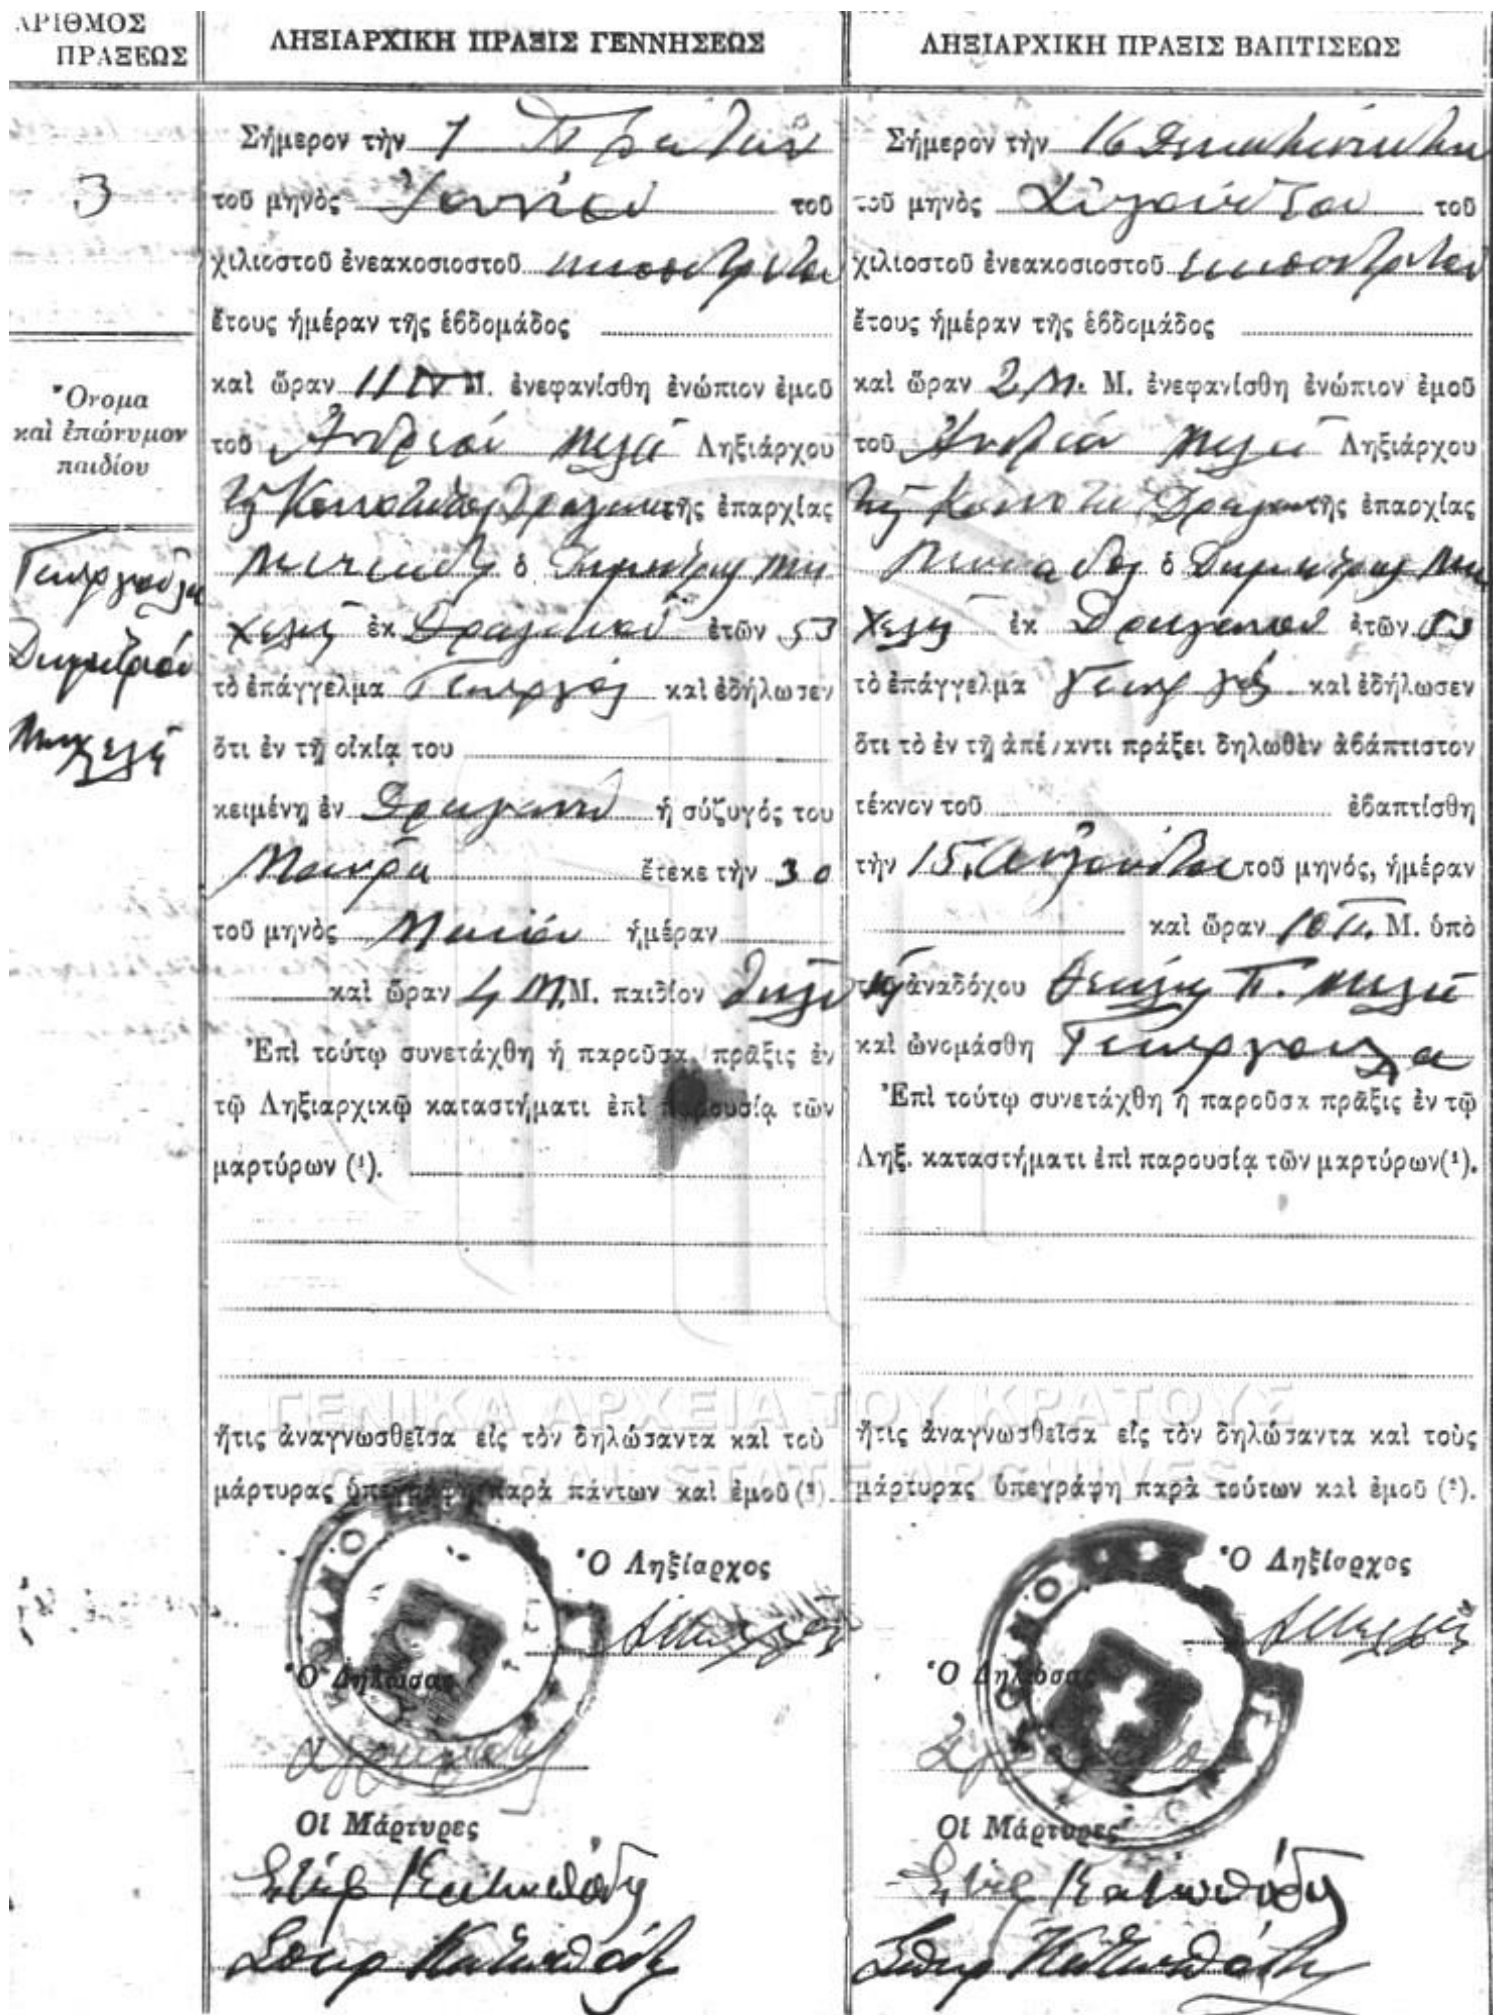 ΑΡΙΘΜΟΣ
ΠΡΑΞΕΩΣ
3
Ὄνομα
καὶ ἐπώνυμον
παιδίου
Γεωργούλα
Δημητρίου
Μιχελῆ
ΛΗΞΙΑΡΧΙΚΗ ΠΡΑΞΙΣ ΓΕΝΝΗΣΕΩΣ
Σήμερον τὴν 1 Πρώτην
τοῦ μηνὸς Ἰουνίου τοῦ
χιλιοστοῦ ἐνεακοσιοστοῦ εικοστρίτου
ἔτους ἡμέραν τῆς ἑβδομάδος
καὶ ὥραν 11 Π Μ. ἐνεφανίσθη ἐνώπιον ἐμοῦ
τοῦ Ἀνδρέου Μελᾶ Ληξιάρχου
τῆς Κοινότητος Δραγανου τῆς ἐπαρχίας
Λευκαδος ὁ Δημήτριος Μι
χελῆς ἐκ Δραγανου ἐτῶν 53
τὸ ἐπάγγελμα Γεωργὸς καὶ ἐδήλωσεν
ὅτι ἐν τῇ οἰκίᾳ του
κειμένῃ ἐν Δραγανω ἡ σύζυγός του
Μαυρα ἔτεκε τὴν 30
τοῦ μηνὸς Μαιου ἡμέραν
καὶ ὥραν 4 Μ. Μ. παιδίον θηλυ
Ἐπὶ τούτῳ συνετάχθη ἡ παροῦσα πρᾶξις ἐν
τῷ Ληξιαρχικῷ καταστήματι ἐπὶ παρουσίᾳ τῶν
μαρτύρων (¹).
ἥτις ἀναγνωσθεῖσα εἰς τὸν δηλώσαντα καὶ τοὺ
μάρτυρας ὑπεγράφη παρὰ πάντων καὶ ἐμοῦ (²).
Ὁ Ληξίαρχος
Ὁ Δηλώσας
ἀγράμματος
Οἱ Μάρτυρες
Κατωπόδης
Σπυρ Κατωπόδης
ΛΗΞΙΑΡΧΙΚΗ ΠΡΑΞΙΣ ΒΑΠΤΙΣΕΩΣ
Σήμερον τὴν 16 Δεκάτηνέκτην
τοῦ μηνὸς Αὐγούστου τοῦ
χιλιοστοῦ ἐνεακοσιοστοῦ εικοστρίτου
ἔτους ἡμέραν τῆς ἑβδομάδος
καὶ ὥραν 2 Μ. Μ. ἐνεφανίσθη ἐνώπιον ἐμοῦ
τοῦ Ἀνδρέα Μελᾶ Ληξιάρχου
τῆς Κοινοτη Δραγανου τῆς ἐπαρχίας
Λευκαδος ὁ Δημητριος Μι
χελῆς ἐκ Δραγανου ἐτῶν 53
τὸ ἐπάγγελμα γεωργὸς καὶ ἐδήλωσεν
ὅτι τὸ ἐν τῇ ἀπέναντι πράξει δηλωθὲν ἀβάπτιστον
τέκνον τοῦ ἐβαπτίσθη
τὴν 15 Αυγουστου τοῦ μηνός, ἡμέραν
καὶ ὥραν 10 Π. Μ. ὑπὸ
τῆς ἀναδόχου Θεκλης Π. Μελᾶ
καὶ ὠνομάσθη Γεωργουλα
Ἐπὶ τούτῳ συνετάχθη ἡ παροῦσα πρᾶξις ἐν τῷ
Ληξ. καταστήματι ἐπὶ παρουσίᾳ τῶν μαρτύρων(¹).
ἥτις ἀναγνωσθεῖσα εἰς τὸν δηλώσαντα καὶ τοὺς
μάρτυρας ὑπεγράφη παρὰ τούτων καὶ ἐμοῦ (²).
Ὁ Ληξίαρχος
Ὁ Δηλώσας
ἀγράμματος
Οἱ Μάρτυρες
Κατωπόδης
Σπυρ Κατωπόδης
ΓΕΝΙΚΑ ΑΡΧΕΙΑ ΤΟΥ ΚΡΑΤΟΥΣ
GENERAL STATE ARCHIVES